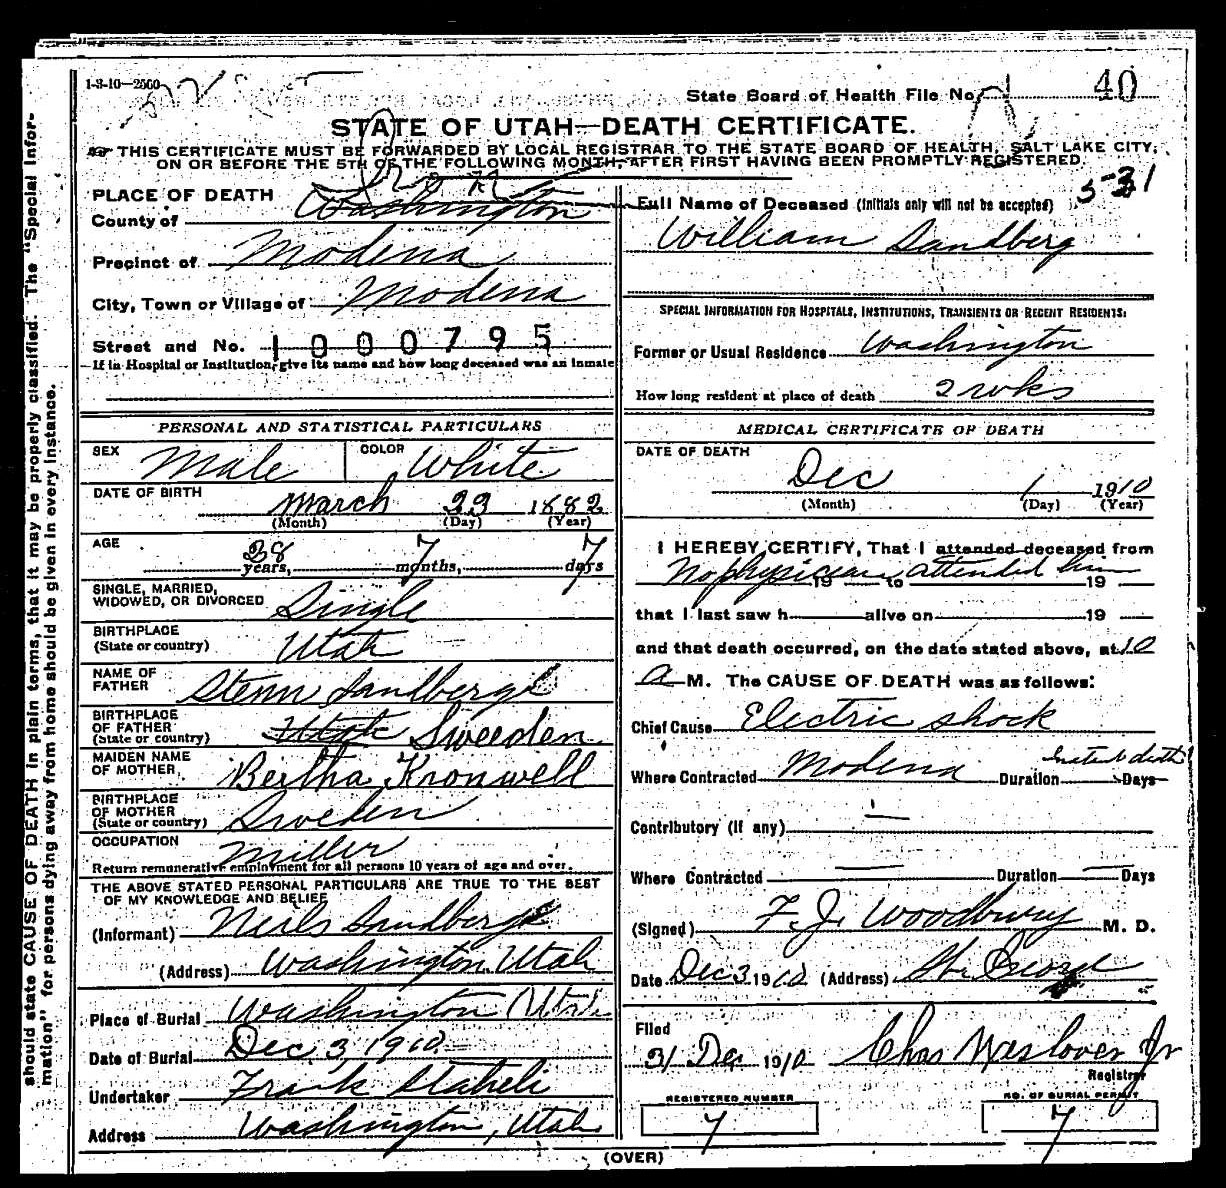 1-3-10—2500
State Board of Health File No. 40
STATE OF UTAH—DEATH CERTIFICATE.
THIS CERTIFICATE MUST BE FORWARDED BY LOCAL REGISTRAR TO THE STATE BOARD OF HEALTH, SALT LAKE CITY,
ON OR BEFORE THE 5TH OF THE FOLLOWING MONTH, AFTER FIRST HAVING BEEN PROMPTLY REGISTERED.
should state CAUSE OF DEATH in plain terms, that it may be properly classified. The "Special Infor-
mation" for persons dying away from home should be given in every instance.
PLACE OF DEATH
County of Washington Iron
Precinct of Modena
City, Town or Village of Modena
Street and No. 1000795
If in Hospital or Institution, give its name and how long deceased was an inmate
PERSONAL AND STATISTICAL PARTICULARS
SEX Male COLOR White
DATE OF BIRTH March 23 1882
(Month) (Day) (Year)
AGE 28 years, 7 months, 7 days
SINGLE, MARRIED,
WIDOWED, OR DIVORCED Single
BIRTHPLACE
(State or country) Utah
NAME OF
FATHER Sandberg
BIRTHPLACE
OF FATHER
(State or country) Utah Sweeden
MAIDEN NAME
OF MOTHER Bertha Kronwell
BIRTHPLACE
OF MOTHER
(State or country) Sweden
OCCUPATION Miller
Return remunerative employment for all persons 10 years of age and over.
THE ABOVE STATED PERSONAL PARTICULARS ARE TRUE TO THE BEST
OF MY KNOWLEDGE AND BELIEF
(Informant) Neils Sandberg
(Address) Washington Utah
Place of Burial Washington Utah
Date of Burial Dec. 3, 1910
Undertaker Frank Staheli
Address Washington, Utah
5-31
Full Name of Deceased (Initials only will not be accepted)
William Sandberg
SPECIAL INFORMATION FOR HOSPITALS, INSTITUTIONS, TRANSIENTS OR RECENT RESIDENTS:
Former or Usual Residence Washington
How long resident at place of death 2 wks
MEDICAL CERTIFICATE OF DEATH
DATE OF DEATH
Dec 1 1910
(Month) (Day) (Year)
I HEREBY CERTIFY, That I attended deceased from
No physician 19 to attended him 19
that I last saw h alive on 19
and that death occurred, on the date stated above, at 10
a M. The CAUSE OF DEATH was as follows:
Chief Cause Electric shock
Where Contracted Modena Duration Instant death Days
Contributory (if any) —
Where Contracted — Duration — Days
(Signed) F. J. Woodbury M. D.
Date Dec 3 1910 (Address) St George
Filed
31 Dec 1910 Chas Jr
Registrar
REGISTERED NUMBER
7
NO. OF BURIAL PERMIT
7
(OVER)